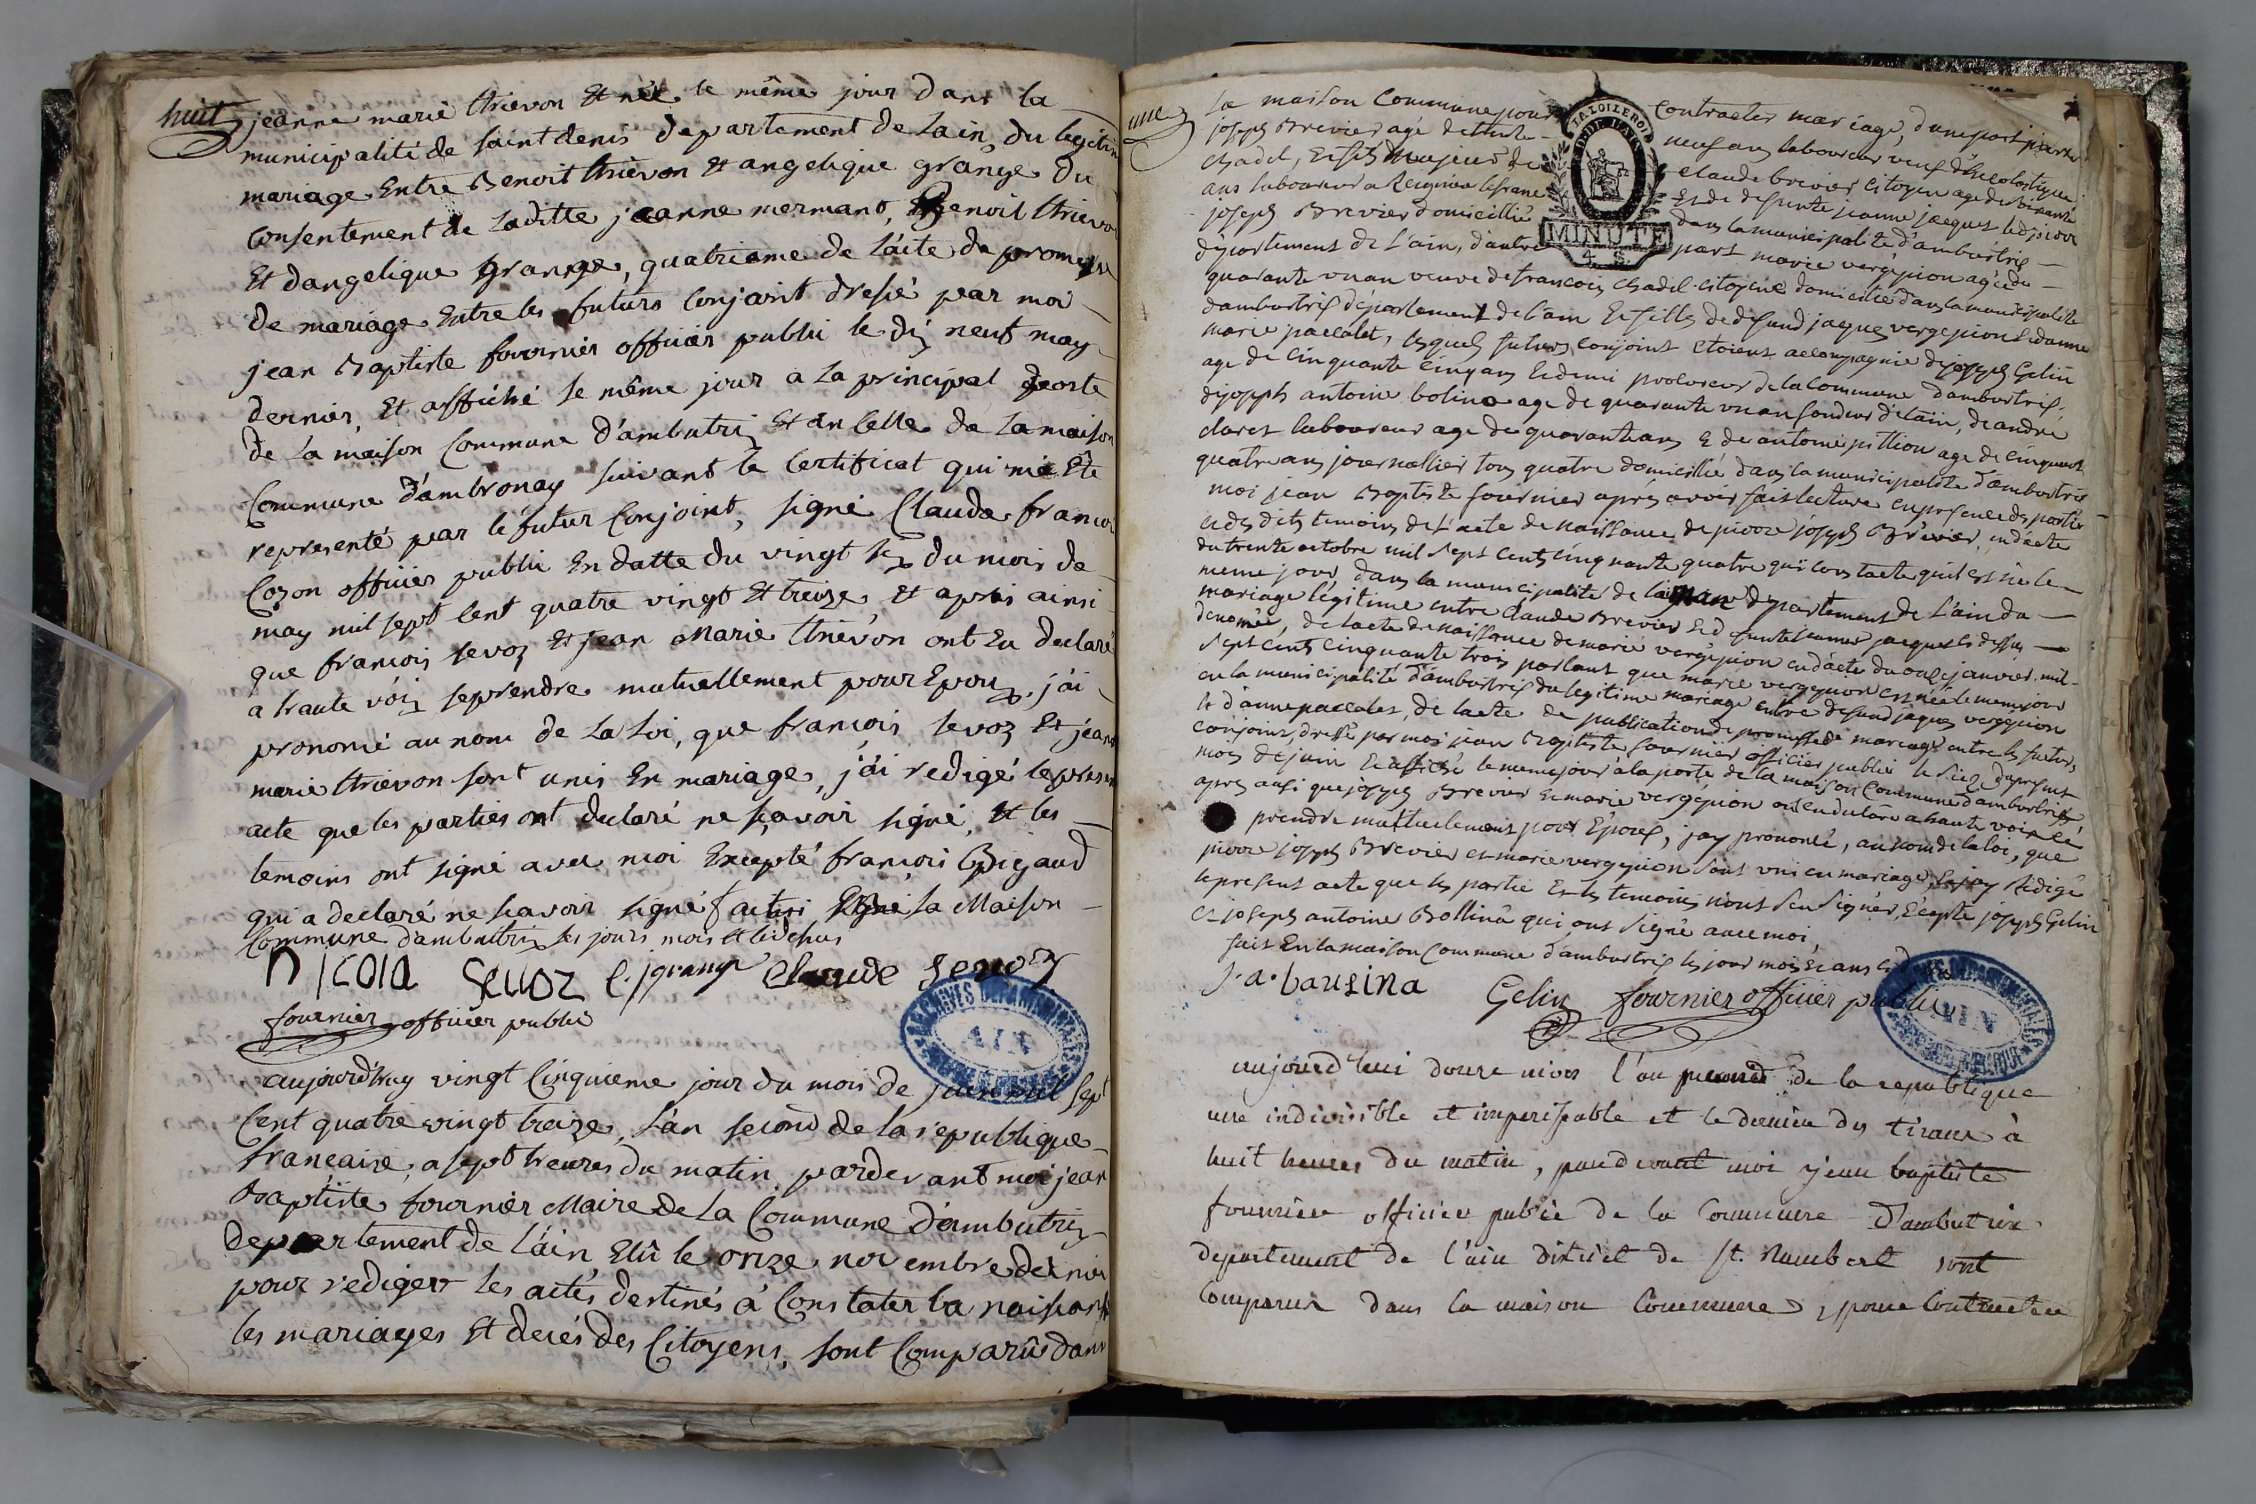 huit
jeanne marie thievon Et née le même jour dans la
municipalité de saint denis departement de Lain, du legitim
mariage Entre Benoit thievon Et angelique grange du
Consentement de Laditte jeanne mermant, Benoit thievon
Et dangelique grange, quatrieme de L'acte de promesse
de mariage Entre les futurs Conjoint dressé par moi
jean Baptiste fournier officier public le dix neuf may
dernier, Et affiché le même jour a La principal porte
de La maison Commune d'ambutrix Et an Celle de La maison
Commune d'ambronay suivant le Certificat qui m'a Eté
representé par le futur Conjoint, signé Claude francoi
Cozon officier public En datte du vingt six du mois de
may mil sept Cent quatre vingt Et treize, Et après ainsi
que francois sevoz Et jean Marie thievon ont Eu declaré
a haute voix seprendre mutuellement pour Epoux, j'ai
prononcé au nom de La Loi, que francois sevoz Et jean
marie thievon sont unis En mariage, j'ai redigé lepresen
acte que les parties ont declaré ne sçavoir signé, Et les
temoins ont signé avec moi Excepté francois Bigaud
qui a declaré ne scavoir signé fait en La Maison
Commune d'ambutrix les jours mois Et an dessus
nicola sevoz C. j grange Claude sevoz
fournier officier public
aujourd'huy vingt Cinquieme jour du mois de juin mil sept
Cent quatre vingt treize, L'an second de la republique
francaise, a sept heures du matin, pardevant moi jean
Baptiste fournier Maire de La Commune d'ambutrix
departement de L'ain, Elû le onze novembre dernier
pour rediger les actes destinés à Constater la naissance
les mariages Et decés des Citoyens, sont Comparûs dans
une
La maison Commune pour contracter mariage, d'une part
LA LOI LE ROI
MINUTE
4. S.
joseph Brevier agé de trente neuf ans laboureur veuf d'
chadel, Et fils majeur de claude brevier citoyen age de
ans laboureur a Leigneu lefranc Et de defunte jeanne jacquet ledit
joseph Brevier domicillié dans la municipalité d'ambustrix
departement de L'ain, d'autre part marie vergepion agée de
quarante un an veuve de francois chadel citoyene domiciliée dans la municipalité
dambustrix departement de l'ain Et fille de defund jaques vergepion Et danne
marie paccalet, lesquels futurs conjoint etoient accompagnie de joseph Gelin
age de Cinquante cinq ans Et demi procureur de la Commune d'ambustrix,
de joseph antoine bolina age de quarante un an fondeur d'etain, de andré
claret laboureur age de quarante ans Et de antoine pition age de cinquante
quatre ans journallier tous quatre domicillié dans la municipalité d'ambustrix
moi jean Baptiste fournier après avoir fait lecture en presence des parties
et des dits temoins de l'acte de naissance de joseph Brevier, en date
du trente octobre mil sept cents cinquante quatre qui constate quil est né le
meme jour dans la municipalité de departement de L'ain du
mariage légitime entre claude Brevier Et defunte jeanne jacquet ci dessus
denomée, de l'acte de naissance de marie vergepion en date du onze janvier mil
sept cents cinquante trois portant que marie vergepion est née le meme jour
en la municipalité d'ambustrix du legitime mariage entre defund jaques vergepion
et d'anne paccalet, de lacte de publication de promesse de mariage entre les futurs
conjoints, dressé par moi jean Baptiste fournier officier public le dupresent
mois de juin Et affiché le meme jour à la porte de la maison commune d'ambustrix
apres ausi que joseph Brevier Et marie vergepion ont eu declaré a haute voix se
prendre mutuellement pour Epoux, jay prononcé, au nom de la loi, que
joseph Brevier et marie vergepion sont uni en mariage, Et jay Redigé
le present acte que les partie Et les temoins n'ont seu signer, Excepté joseph Gelin
et joseph antoine Bollina qui ont signé avec moi,
fait En la maison Commune d'ambustrix les jour mois Et ans
j. a. bausina Gelin fournier officier public
aujourd'hui douze nivos l'an second de la republique
une indivisible et imperissable et le dernier des tirans à
huit heures du matin, pardevant moi jean baptiste
fournier officier public de la Commune d'ambutrix
departement de l'ain district de St. Rambert sont
Comparus dans la maison Commune, pour Contracter
ARCHIVES DEPARTEMENTALES
AIN
ARCHIVES DEPARTEMENTALES
AIN